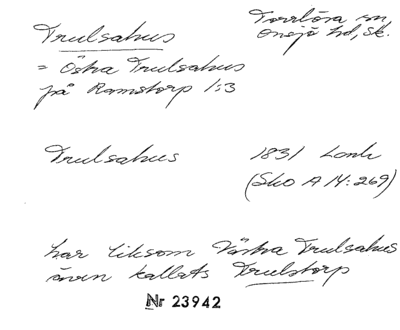 Trulsahus
Torrlösa sn
Onsjö hd, Sk.
= Östra Trulsahus
på Ramstorp 1:3
Trulsahus 1831 Lonh
(Sko A IV: 269)
har liksom Västra Trulsahus
även kallats Trulstorp
Nr 23942